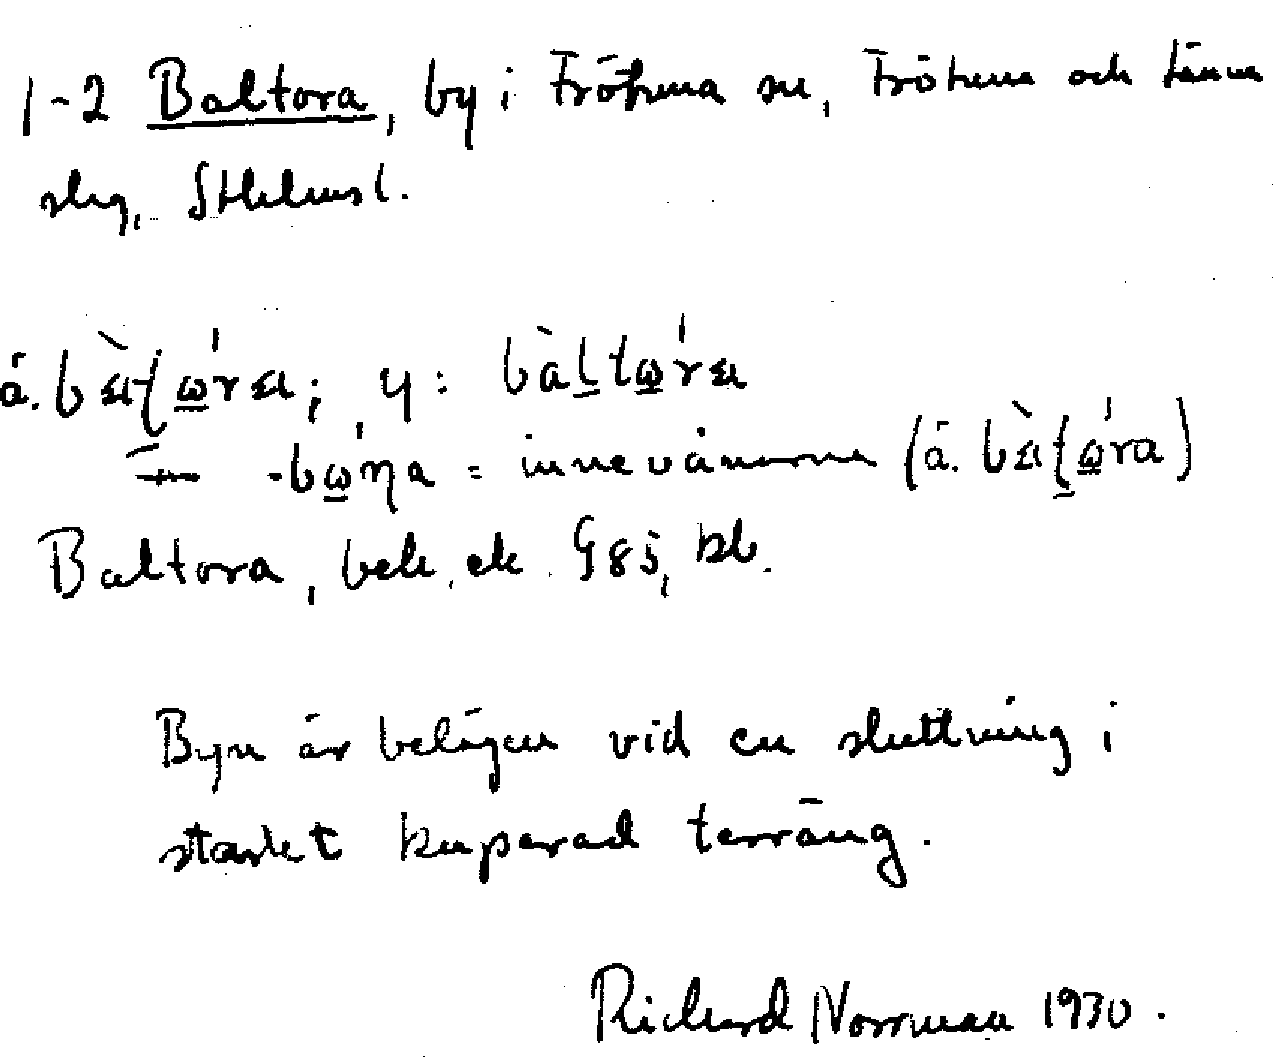 1-2 Baltora, by i Frötuna sn, Frötuna och Länna
slg, Sthlmsl.
á. bàƚώ̲ra; y: bàl̲tώ̲ra
-bώ̲ŋa = innevånarna (á. bàƚώ̲ra)
Baltora, bek. ek. §85, kb.
Byn är belägen vid en sluttning i
starkt kuperad terräng.
Richard Norrman 1930.